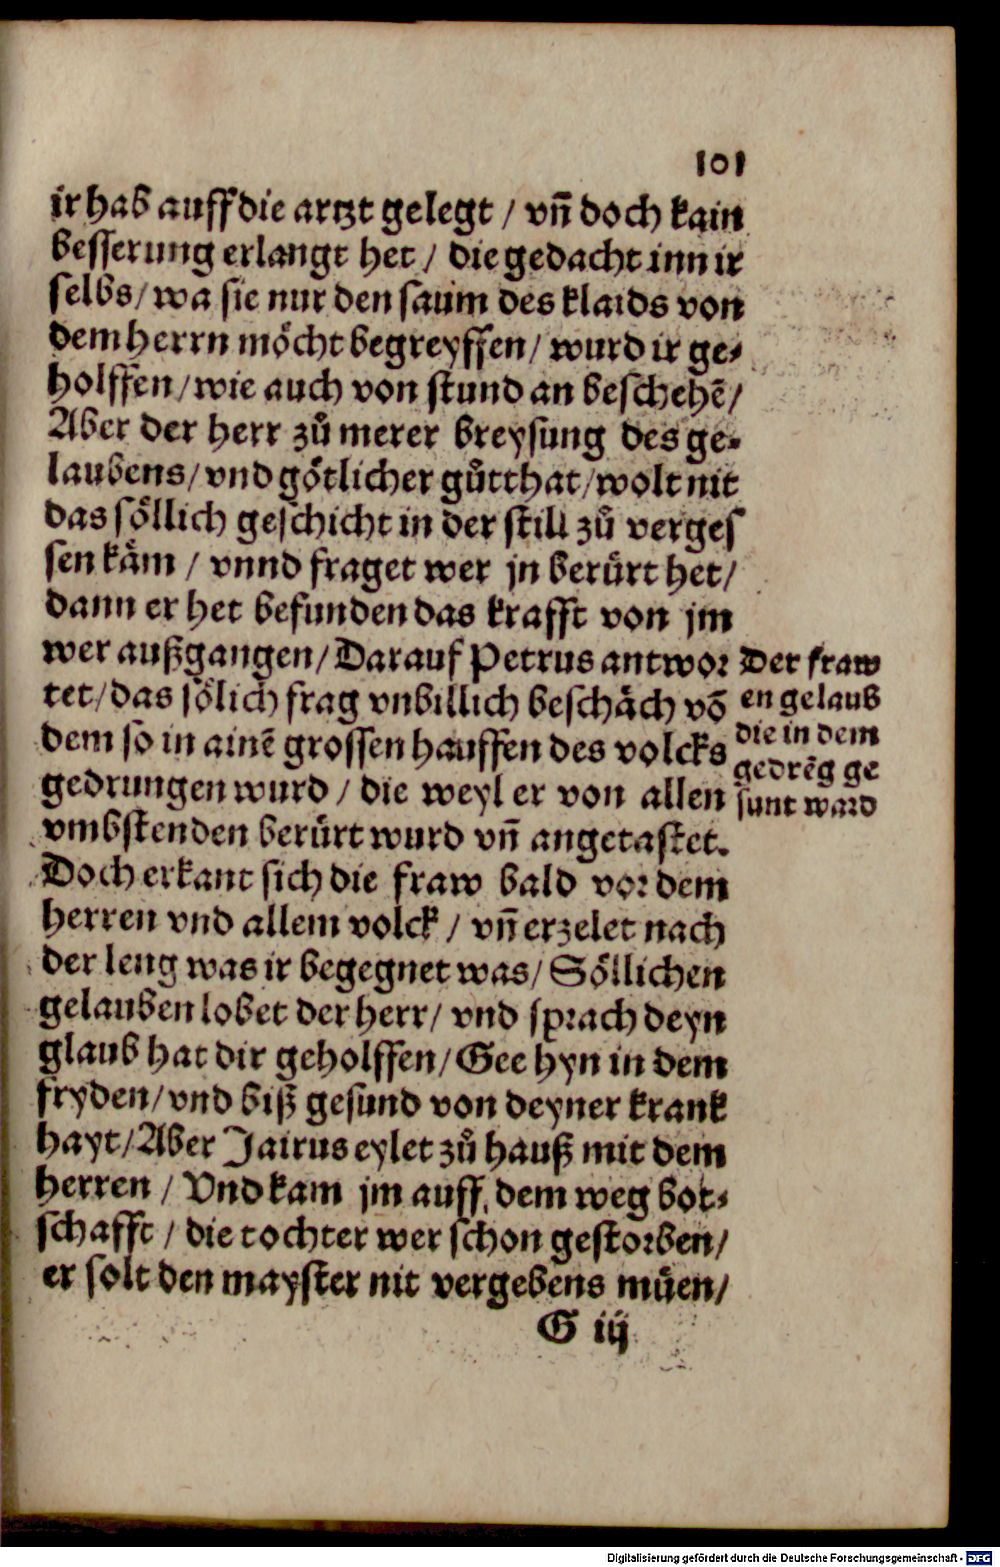 101
ir hab auff die artzt gelegt / vñ doch kain
besserung erlangt het / die gedacht inn ir
selbs / wa sie nur den saum des klaids von
dem herrn möcht begreyffen / wurd ir ge⸗
holffen / wie auch von stund an beschehẽ /
Aber der herr zů merer breysung des ge⸗
laubens / vnd götlicher gůtthat / wolt nit
das söllich geschicht in der still zů verges
sen käm / vnnd fraget wer jn berürt het /
dann er het befunden das krafft von jm
wer außgangen / Darauf Petrus antwor
tet / das sölich frag vnbillich beschäch võ
dem so in ainẽ grossen hauffen des volcks
gedrungen wurd / die weyl er von allen
vmbstenden berürt wurd vñ angetastet.
Doch erkant sich die fraw bald vor dem
herren vnd allem volck / vñ erzelet nach
der leng was ir begegnet was / Söllichen
gelauben lobet der herr / vnd sprach deyn
glaub hat dir geholffen / Gee hyn in dem
fryden / vnd biß gesund von deyner krank
hayt / Aber Jairus eylet zů hauß mit dem
herren / Vnd kam jm auff dem weg bot⸗
schafft / die tochter wer schon gestorben /
er solt den mayster nit vergebens müen /
G iij
Der fraw
en gelaub
die in dem
gedrẽg ge
sunt ward
Digitalisierung gefördert durch die Deutsche Forschungsgemeinschaft - DFG